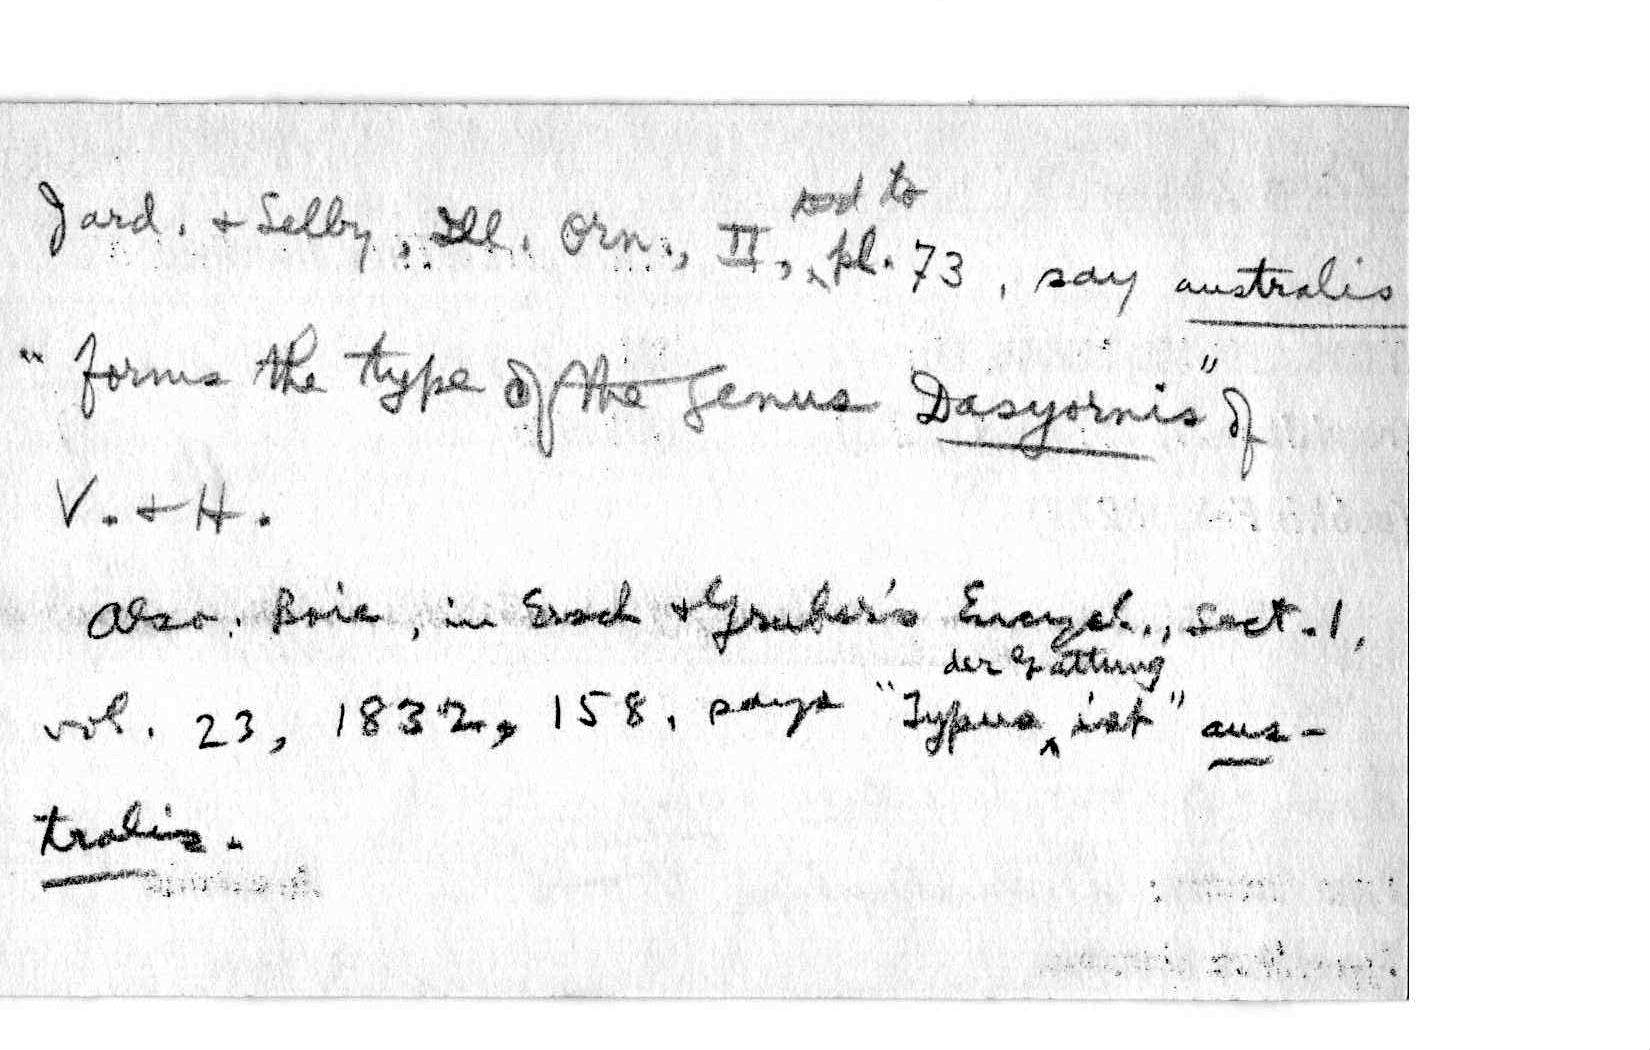 Jard. + Selby, Ill. Orn., II, text to pl. 73, say australis
"forms the type of the genus Dasyornis" of
V. + H.
Also. Boie, in Ersch + Gruber's Encycl., Sect. 1,
vol. 23, 1832, 158, says "Typus der Gattung ist" aus-
tralis.